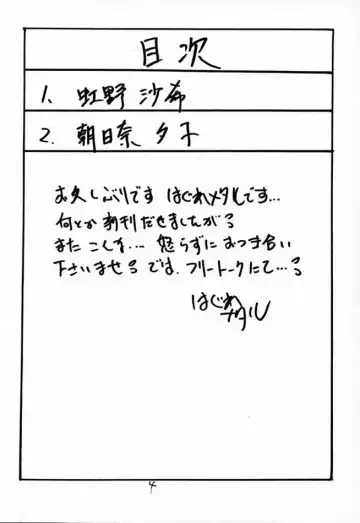 目次
1. 虹野沙希
2. 朝日奈夕子
お久しぶりです はじめメタルです…
何とか新刊だせましたがろ
また こしを… 怒らずにおつき合い
下さいませろ では、フリートークにて…ろ
はぐれメタル
4